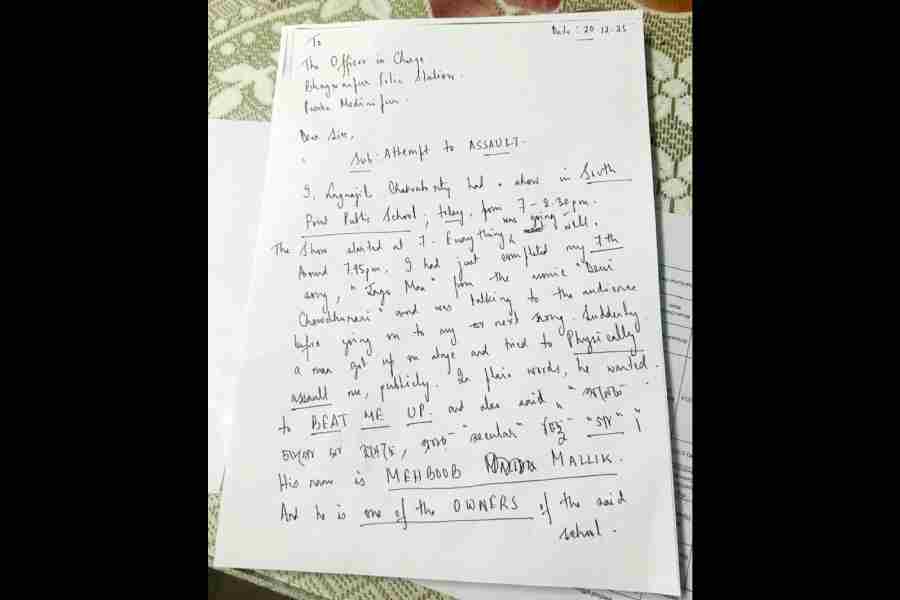 Date : 20.12.25
To
The Officer in Charge
Bhagwanpur Police Station.
Purba Medinipur.
Dear Sir,
Sub: Attempt to ASSAULT.
I, Lagnajit Chakraborty had a show in South
Point Public School, today, from 7 - 8.30 pm.
The show started at 7. Everything was going well.
Around 7.45 pm. I had just completed my 7th
song, "Jago Maa" from the movie "Devi
Chowdhurani" and was talking to the audience
before going on to my next song. Suddenly
a man got up on stage and tried to Physically
assault me, publicly. In plain words, he wanted
to BEAT ME UP. and also said, "অনেক
হয়েছে, "secular" কিছু "গা" ।
His name is MEHBOOB MALLIK.
And he is one of the OWNERS of the said
school.